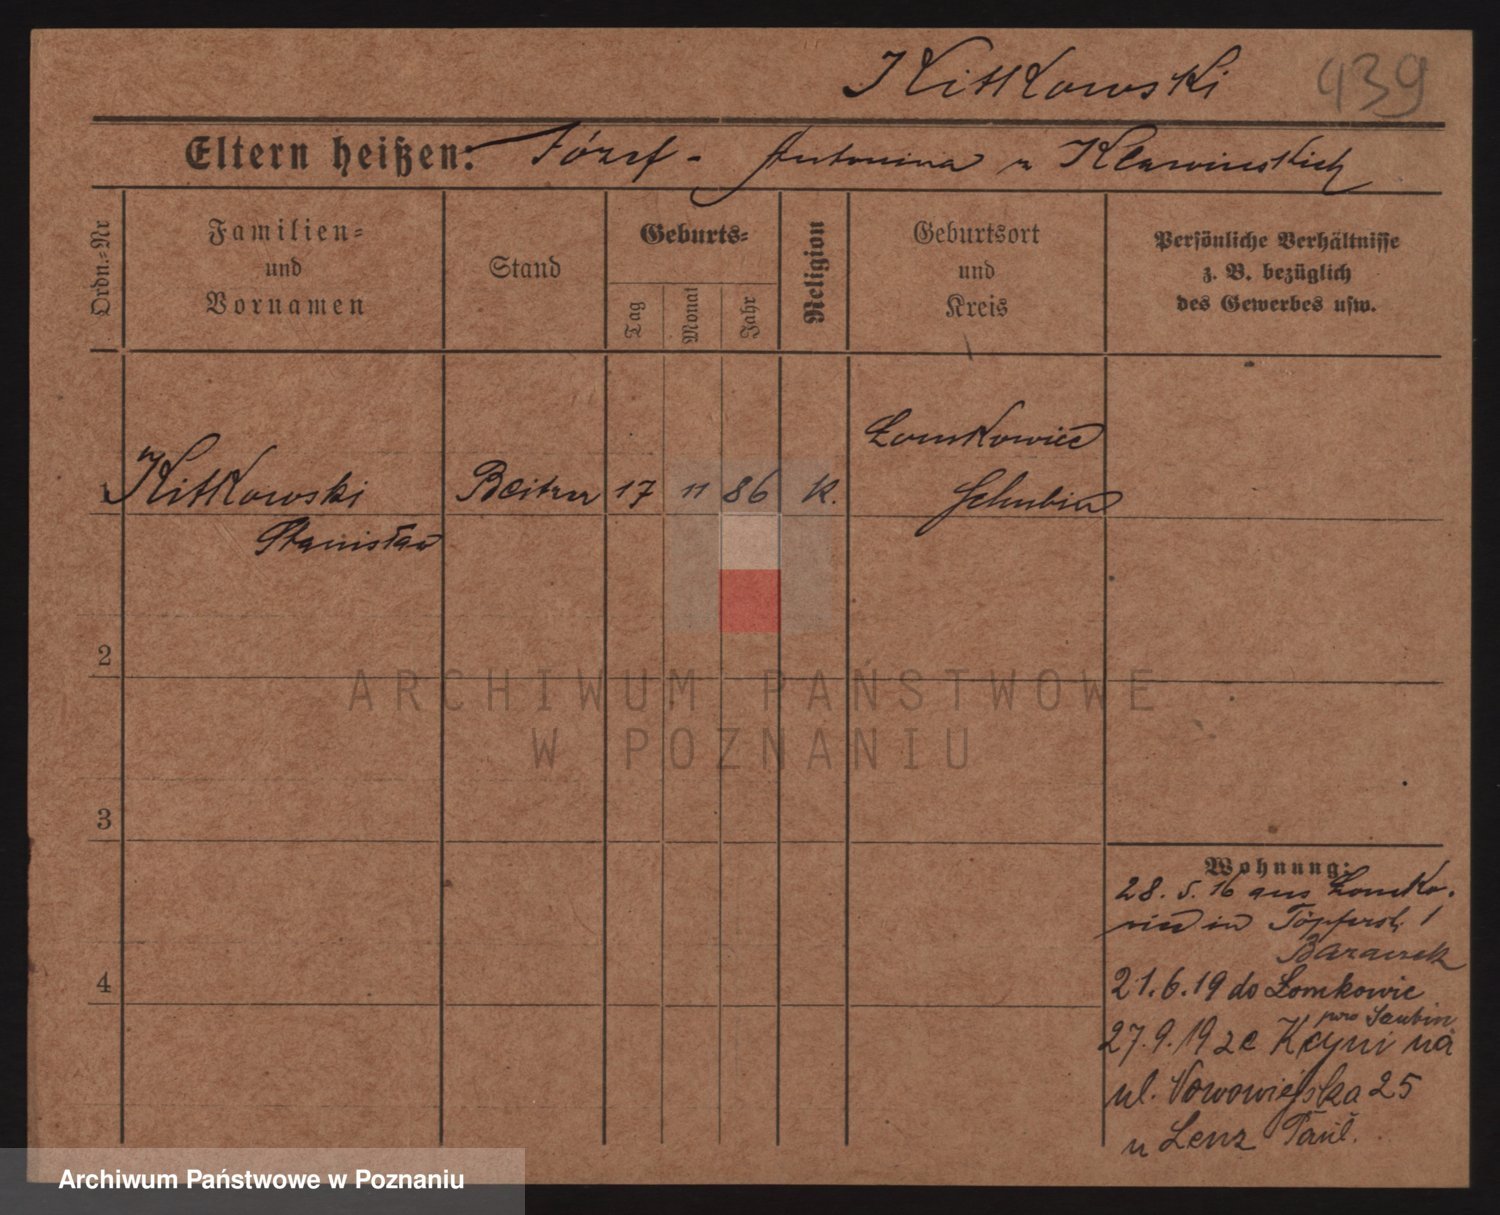 Kitkowski 439
Eltern heißen: Józef - Antonina z Klawinskich
Ordn.-Nr
Familien=
und
Vornamen
Stand
Geburts=
Tag
Monat
Jahr
Religion
Geburtsort
und
Kreis
Persönliche Verhältnisse
z. B. bezüglich
des Gewerbes usw.
1 Kitkowski
Stanisław
17 11 86 K.
Łomkowiec
Schubin
2
3
4
Wohnung:
28. 5. 16 aus Łomko.
in Töpferstr. 1
21.6.19 do Łomkowic
pow Szubin
27.9.19 ze Kcyni na
ul. Nowowiejska 25
u Lenz Paul.
ARCHIWUM PAŃSTWOWE
W POZNANIU
Archiwum Państwowe w Poznaniu